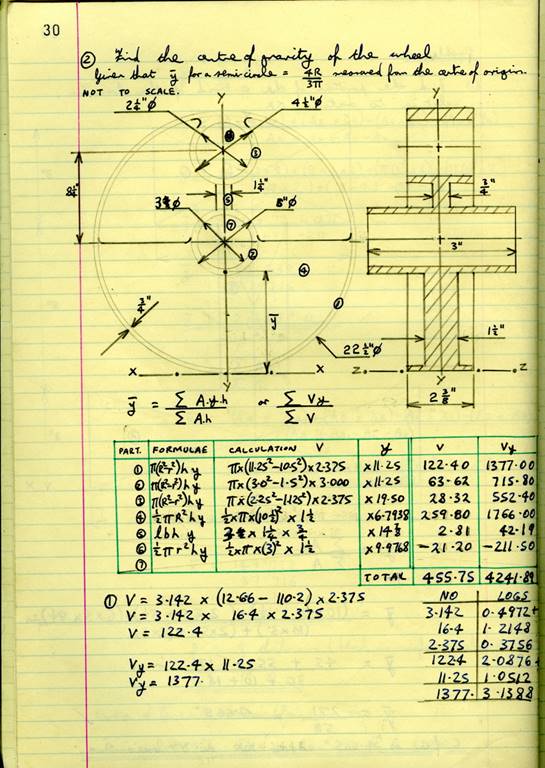 30
② Find the centre of gravity of the wheel
Given that ȳ for a semi-circle = 4R/3π measured from the centre of origin.
NOT TO SCALE.
Y
Y
2¼"Ø
4½"Ø
③
1¼"
¾"
8¼"
⑤
⑦
3"
②
④
ȳ
①
¾"
22½"Ø
1½"
X X
Z Z
Y
Y
2⅜"
ȳ = Σ A.y.h / Σ A.h or Σ Vy / Σ V
PART. FORMULAE CALCULATION V y V Vy
① π(R²-r²)h y π×(11.25²-10.5²)×2.375 ×11.25 122.40 1377.00
② π(R²-r²)h y π×(3.0²-1.5²)×3.000 ×11.25 63.62 715.80
③ π(R²-r²)h y π×(2.25²-1.125²)×2.375 ×19.50 28.32 552.40
④ ½πR²h y ½×π×(10½)²×1½ ×6.7938 259.80 1766.00
⑤ lbh y × 1¼ × ¾ ×14⅞ 2.81 42.19
⑥ ½πr²h y ½×π×(3)²×1½ ×9.9768 -21.20 -211.50
⑦
TOTAL 455.75 4241.89
① V = 3.142 × (12.66 - 110.2) × 2.375
V = 3.142 × 16.4 × 2.375
V = 122.4
Vy = 122.4 × 11.25
Vy = 1377.
NO LOGS
3.142 0.4972+
16.4 1.2148
2.375 0.3756
1224 2.0876+
11.25 1.0512
1377. 3.1388